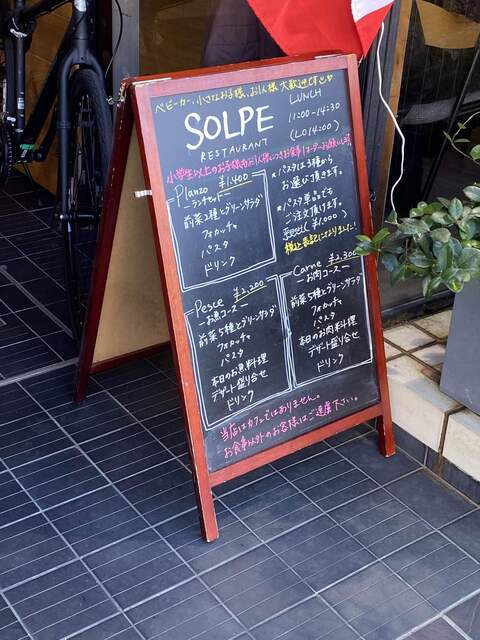 ベビーカー、小さなお子様、お1人様 大歓迎です
SOLPE
RESTAURANT
LUNCH
11:00-14:30
(LO14:00)
小学生以上のお子様もお1人様につきお食事1オーダーお願いします。
Planzo ¥1,400
ーランチセットー
前菜2種とグリーンサラダ
フォカッチャ
パスタ
ドリンク
*パスタは3種から
お選び頂きます。
*パスタ単品でも
ご注文頂けます。
(¥1,000)
Pesce ¥2,200
ーお魚コースー
前菜5種とグリーンサラダ
フォカッチャ
パスタ
本日のお魚料理
デザート盛り合せ
ドリンク
Carne ¥2,300
ーお肉コースー
前菜5種とグリーンサラダ
フォカッチャ
パスタ
本日のお肉料理
デザート盛り合せ
ドリンク
当店はカフェではありません。
お食事以外のお客様はご遠慮下さい。